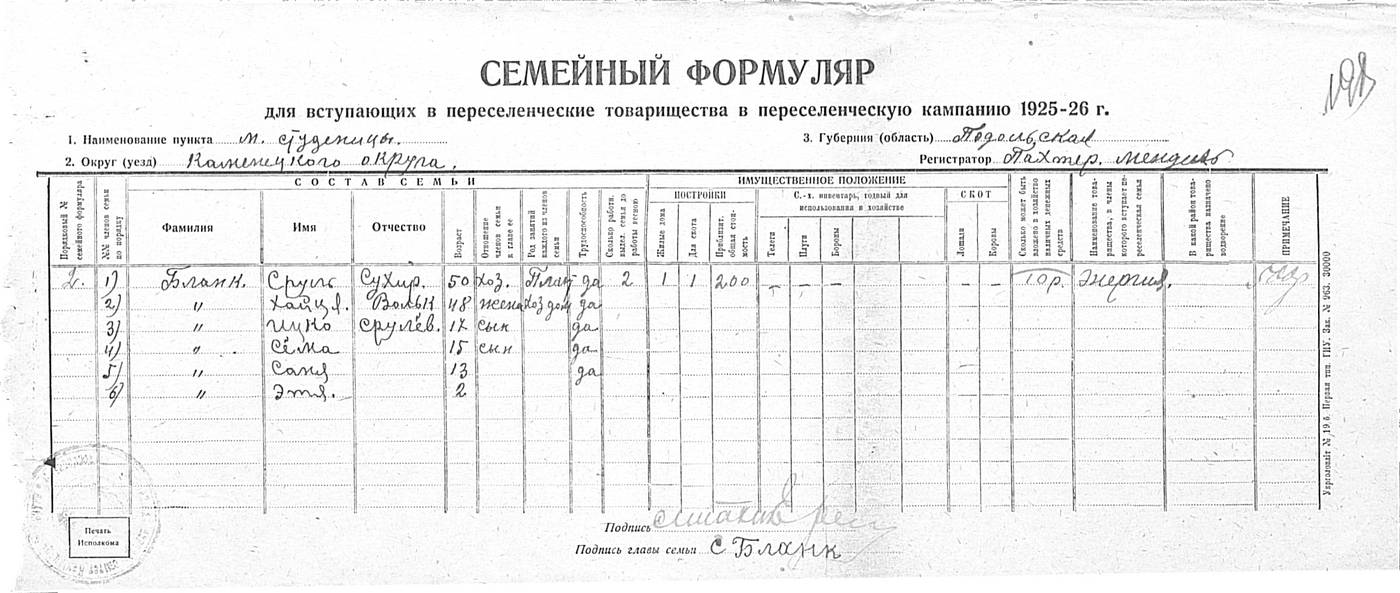 СЕМЕЙНЫЙ ФОРМУЛЯР
для вступающих в переселенческие товарищества в переселенческую кампанию 1925-26 г.
1. Наименование пункта м. Студеницы.
3. Губерния (область) Подольская
2. Округ (уезд) Каменецкого округа.
Регистратор Пахтер.
СОСТАВ СЕМЬИ
ИМУЩЕСТВЕННОЕ ПОЛОЖЕНИЕ
Порядковый № семейного формуляра
№№ членов семьи по порядку
Фамилия
Имя
Отчество
Возраст
Отношение членов семьи к главе ее
Род занятий каждого из членов семьи
Трудоспособность
Сколько работн. выдел. семья до работы весною
ПОСТРОЙКИ
Жилые дома
Для скота
Приблизит. общая стоимость
С.-х. инвентарь, годный для использования в хозяйстве
Телеги
Плуги
Бороны
СКОТ
Лошади
Коровы
Сколько может быть вложено в хозяйство наличных денежных средств
Наименование товарищества, в члены которого вступает переселенческая семья
В какой район товарищества назначено водворение
ПРИМЕЧАНИЕ
2. 1) Бланк. Сруль 50 хоз. да 2 1 1 200 – – – – – Энергия.
2) " Хайця. Вольк 48 жена хоз дом да
3) " Ицко Срулёв. 17 сын да
4) " Сёма 15 сын да
5) " Саня 13 да
6) " Этя. 2
Печать
Исполкома
Подпись
Подпись главы семьи С Бланк
Укрголовліт № 19.6. Первая тип. ГИУ. Зак. № 963. 30000